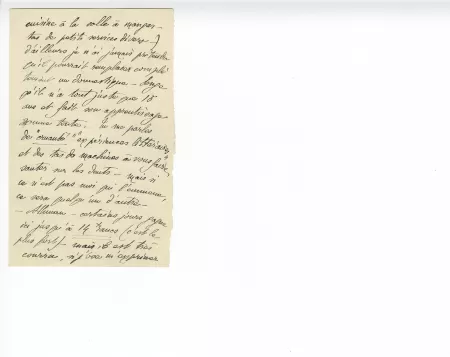 cuisine à la salle à manger
tas de petits services divers —)
d'ailleurs je n'ai jamais prétendu
qu'il pourrait remplacer complè
tement un domestique — Songe
qu'il n'a tout juste que 15
ans et fait son apprentissage
comme toute. Tu me parles
de "cruauté" "expériences littéraires"
et des tas de machines à vous faire
sauter sur les dents — mais si
ce n'est pas moi qui l'emmène,
ce sera quelqu'un d'autre —
— certains jours
jusqu'à 14 francs (c'est le
plus fort) — mais il est très
courru, si j'ose m'exprimer